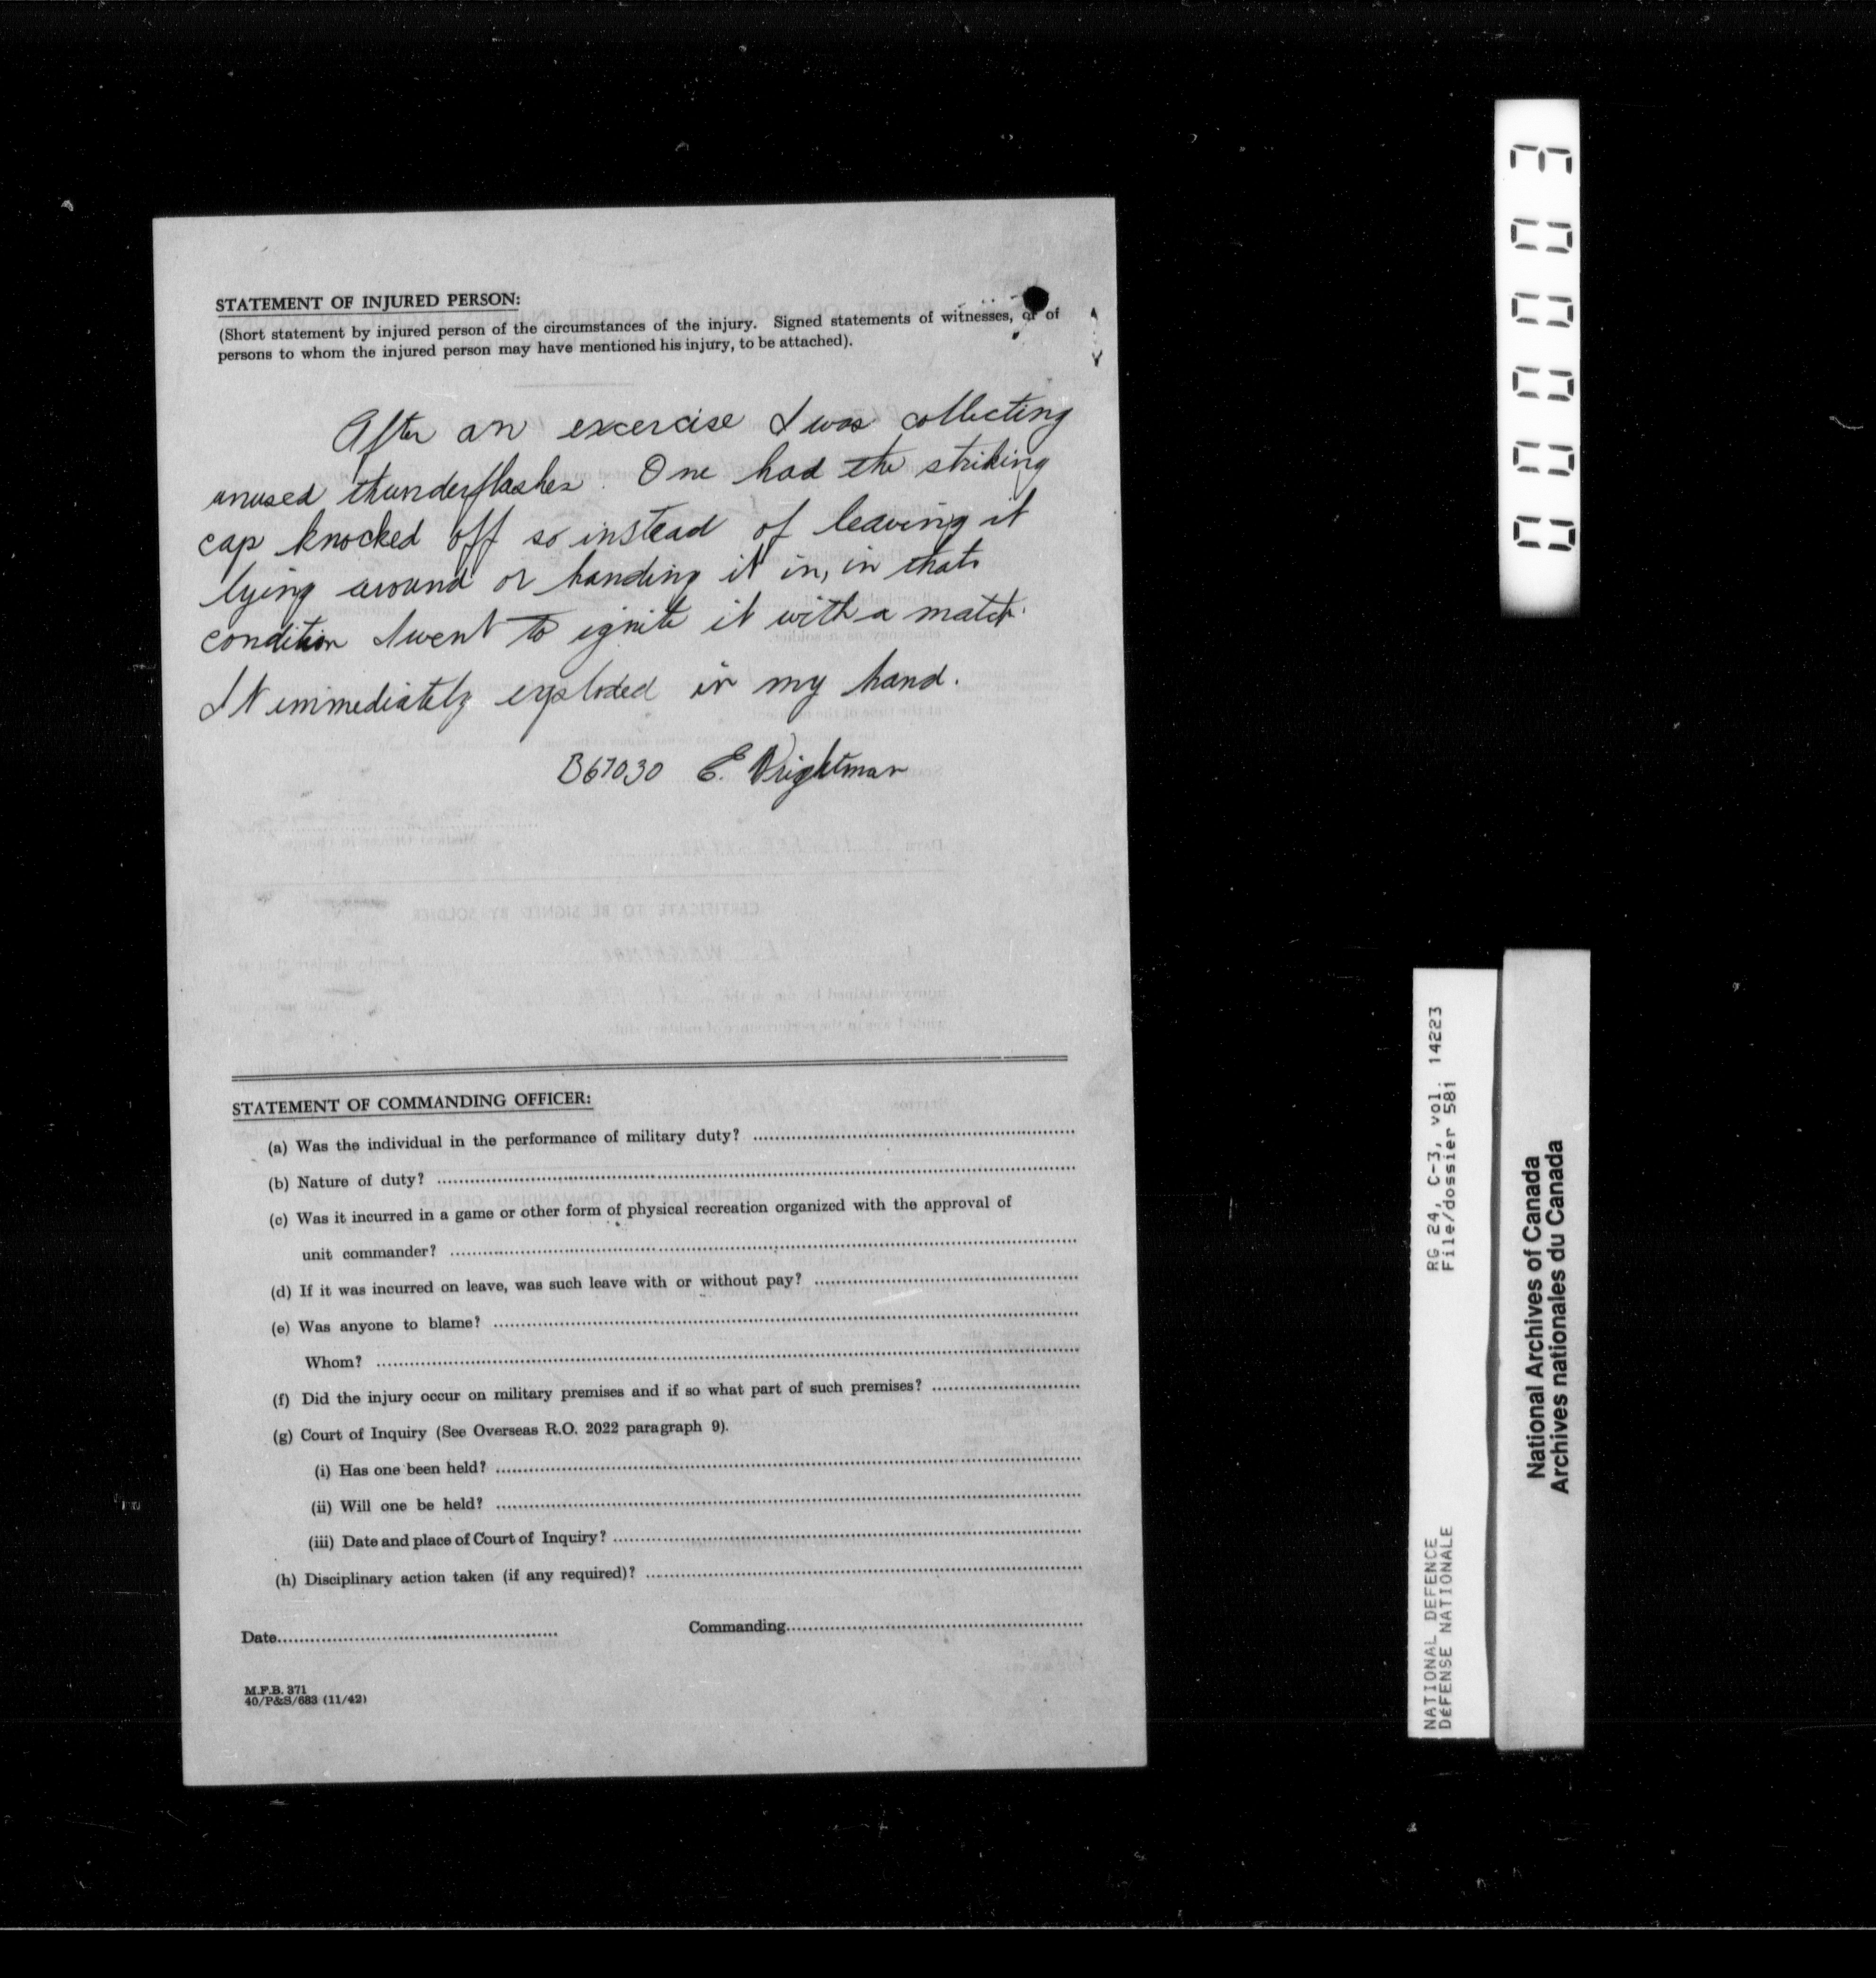 STATEMENT OF INJURED PERSON:
(Short statement by injured person of the circumstances of the injury. Signed statements of witnesses, or of
persons to whom the injured person may have mentioned his injury, to be attached).
After an excercise I was collecting
unused thunderflashes. One had the striking
cap knocked off so instead of leaving it
lying around or handing it in, in that
condition I went to ignite it with a match.
It immediately exploded in my hand.
B67030 E. Wrightman
STATEMENT OF COMMANDING OFFICER:
(a) Was the individual in the performance of military duty?
(b) Nature of duty?
(c) Was it incurred in a game or other form of physical recreation organized with the approval of
unit commander?
(d) If it was incurred on leave, was such leave with or without pay?
(e) Was anyone to blame?
Whom?
(f) Did the injury occur on military premises and if so what part of such premises?
(g) Court of Inquiry (See Overseas R.O. 2022 paragraph 9).
(i) Has one been held?
(ii) Will one be held?
(iii) Date and place of Court of Inquiry?
(h) Disciplinary action taken (if any required)?
Date Commanding
M.F.B. 371
40/P&S/683 (11/42)
000003
RG 24, C-3, vol. 14223
File/dossier 581
NATIONAL DEFENCE
DÉFENSE NATIONALE
National Archives of Canada
Archives nationales du Canada